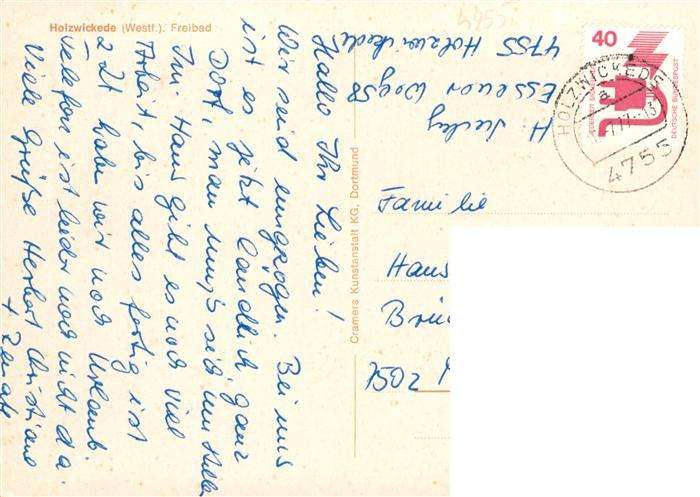 Holzwickede (Westf.). Freibad
Hallo Ihr Lieben!
Wir sind eingezogen. Bei uns
ist es jetzt ländlich ganz
Dort, man muß sich
Im Haus gibt es noch viel
Arbeit, bis alles fertig ist
z Zt haben wir noch Urlaub
Telefon ist leider noch nicht da.
Viele Grüße Herbert Christiane
+ Renate
Cramers Kunstanstalt KG. Dortmund
H.
Essener Weg 58
4755 Holzwickede
40
DEUTSCHE BUNDESPOST
HOLZWICKEDE
a
4755
Familie
Hans
Brü
7502